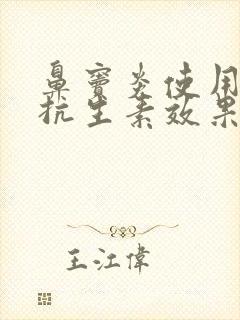 鼻窦炎使用
抗生素效果
王江伟